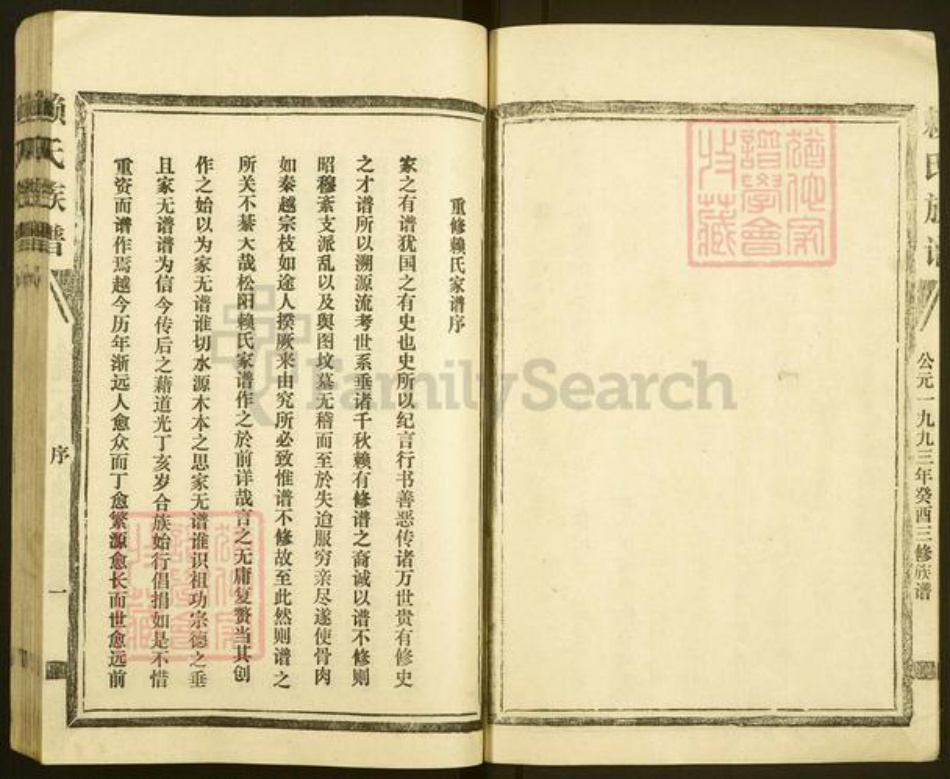 赖氏族谱
公元一九九三年癸酉三修族谱
重修赖氏家谱序
家之有谱犹国之有史也史所以纪言行书善恶传诸万世贵有修史
之才谱所以溯源流考世系垂诸千秋赖有修谱之裔诚以谱不修则
昭穆紊支派乱以及舆图坟墓无稽而至於失迨服穷亲尽遂使骨肉
如秦越宗枝如途人揆厥来由究所必致惟谱不修故至此然则谱之
所关不綦大哉松阳赖氏家谱作之於前详哉言之无庸复赘当其创
作之始以为家无谱谁切水源木本之思家无谱谁识祖功宗德之垂
且家无谱谱为信今传后之藉道光丁亥岁合族始行倡捐如是不惜
重资而谱作焉越今历年渐远人愈众而丁愈繁源愈长而世愈远前
赖氏族谱
序
一
FamilySearch